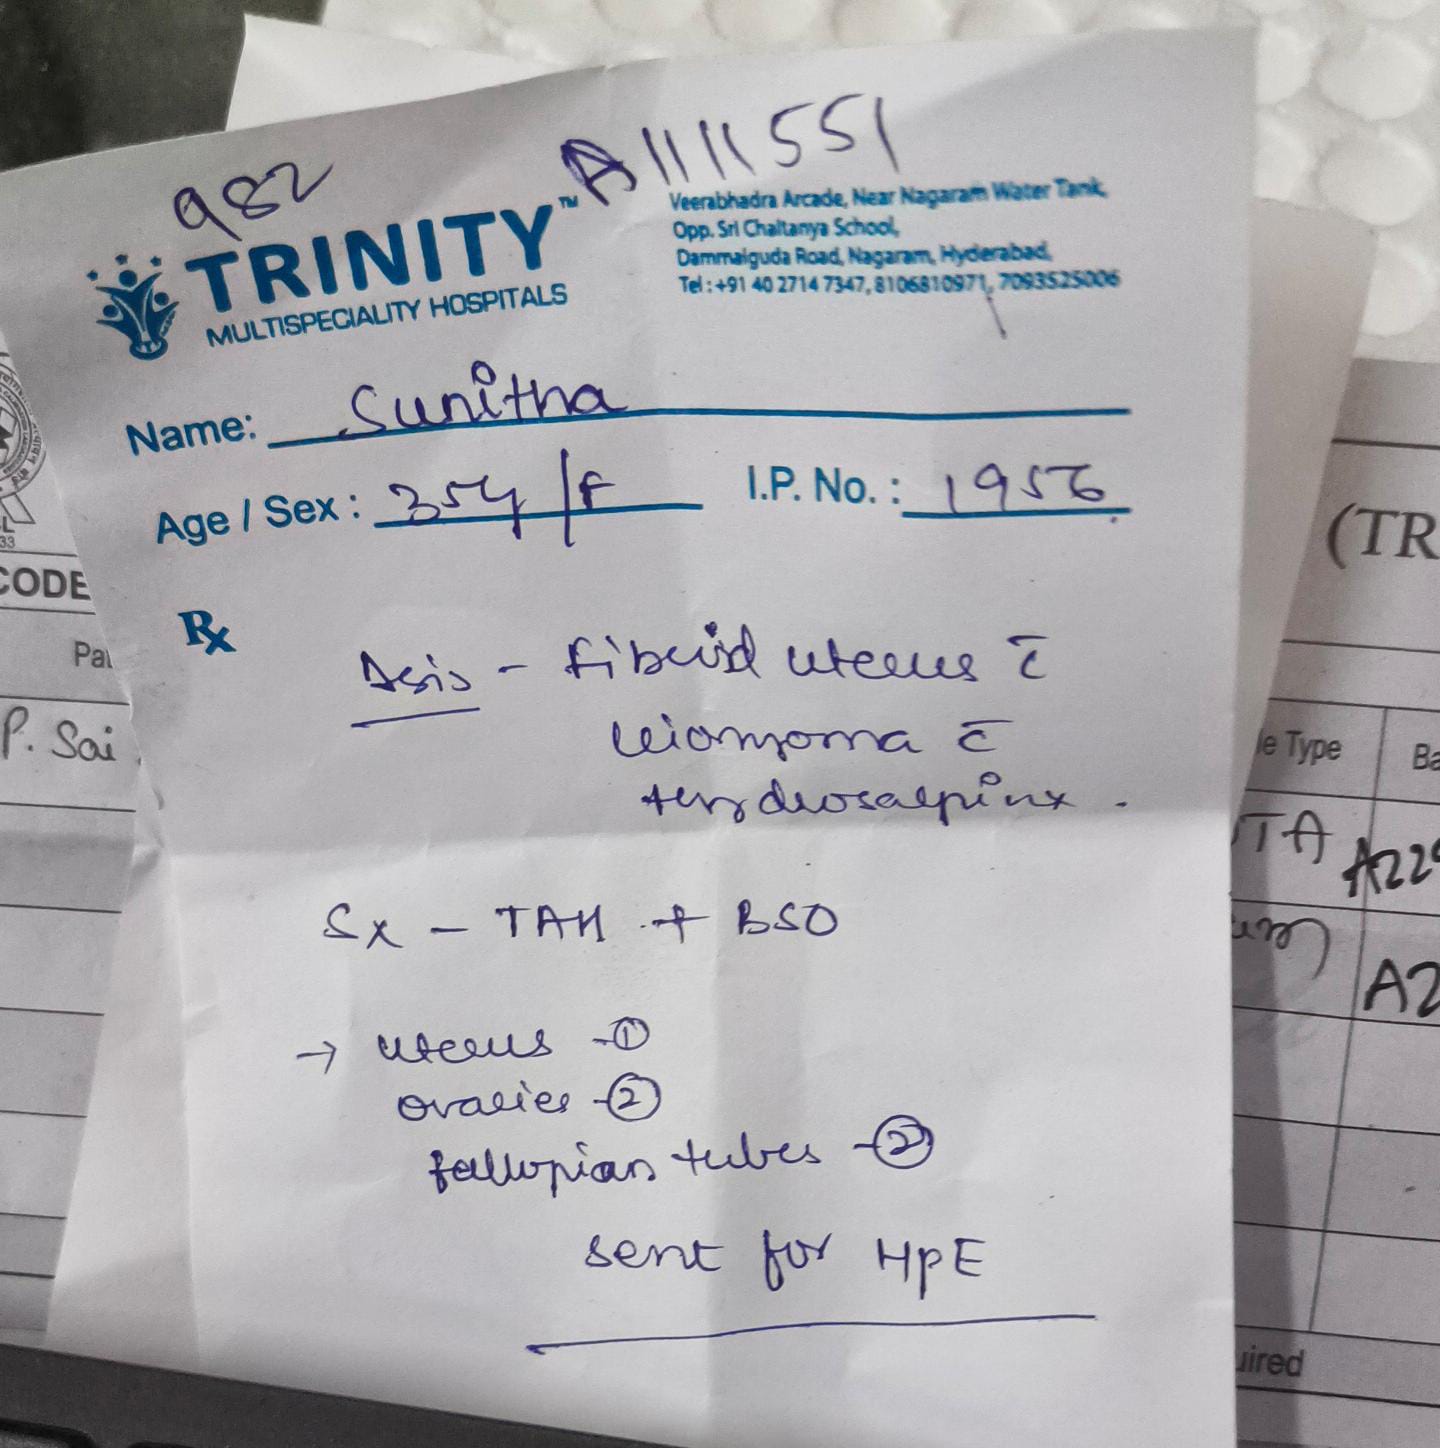 982
A1111551
TRINITY™
MULTISPECIALITY HOSPITALS
Veerabhadra Arcade, Near Nagaram Water Tank,
Opp. Sri Chaitanya School,
Dammaiguda Road, Nagaram, Hyderabad,
Tel : +91 40 2714 7347, 8106810971, 7093525006
Name: Sunitha
Age / Sex : 35y/F
I.P. No. : 1956
Rx
- Fibroid uterus c̄
leiomyoma c̄
Hydrosalpinx.
Sx - TAH + BSO
→ uterus - ①
ovaries - ②
fallopian tubes - ②
sent for HPE
CODE
P. Sai
(TR
le Type
Ba
TA
A22
A2
uired
33